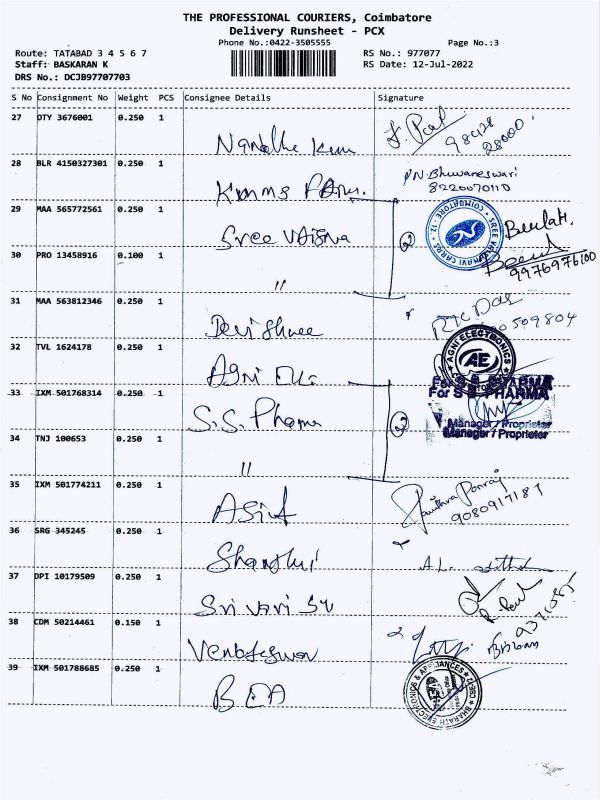 THE PROFESSIONAL COURIERS, Coimbatore
Delivery Runsheet - PCX
Phone No.:0422-3505555 Page No.:3
Route: TATABAD 3 4 5 6 7 RS No.: 977077
Staff: BASKARAN K RS Date: 12-Jul-2022
DRS No.: DCJB97707703
S No Consignment No Weight PCS Consignee Details Signature
27 OTY 3676001 0.250 1
28 BLR 4150327301 0.250 1 N. Bhuwaneswari
8220070110
29 MAA 565772561 0.250 1 Sree Vaisna
30 PRO 13458916 0.100 1 " 2
9976976100
31 MAA 563812346 0.250 1 Devi Shree
32 TVL 1624178 0.250 1 Agni
AGNI ELECTRONICS
AE
33 IXM 501768314 0.250 1 S.S. Pharma
For S S PHARMA
Manager / Proprietor
34 TNJ 100653 0.250 1 " 2
35 IXM 501774211 0.250 1 Asif
36 SRG 345245 0.250 1 Shanthi A.L.
37 DPI 10179509 0.250 1 Sri Vari
38 CDM 50214461 0.150 1 Venkateswar
39 IXM 501788685 0.250 1
BHARATH ELECTRONICS & APPLIANCES